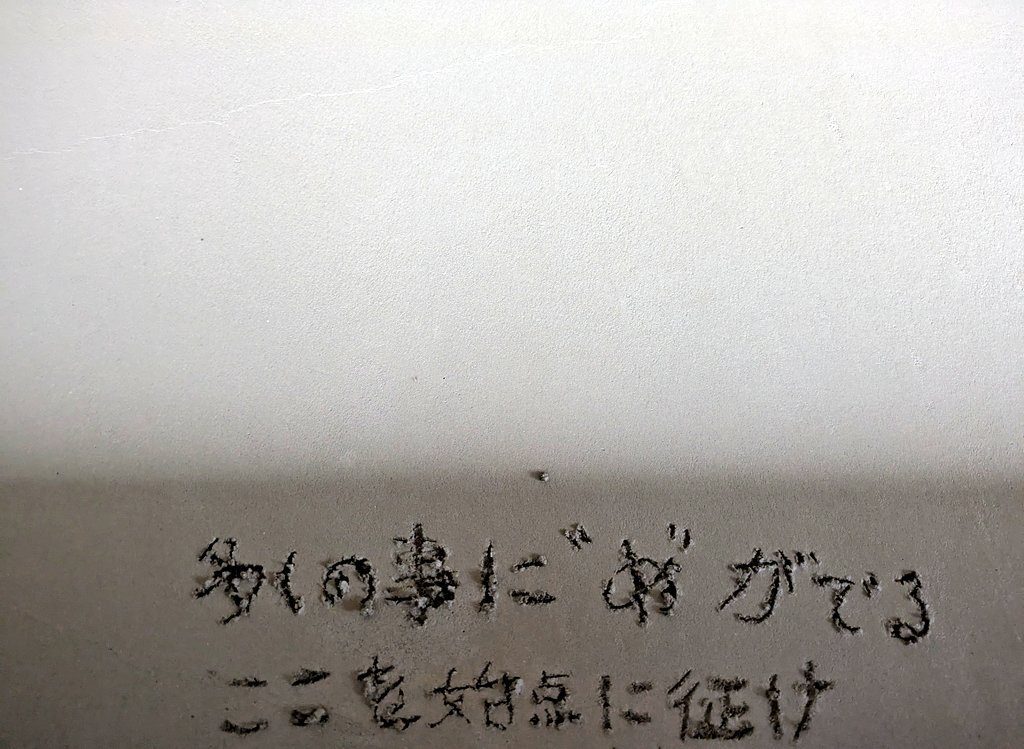 多くの事に"め"がでる
ここを始点に征け